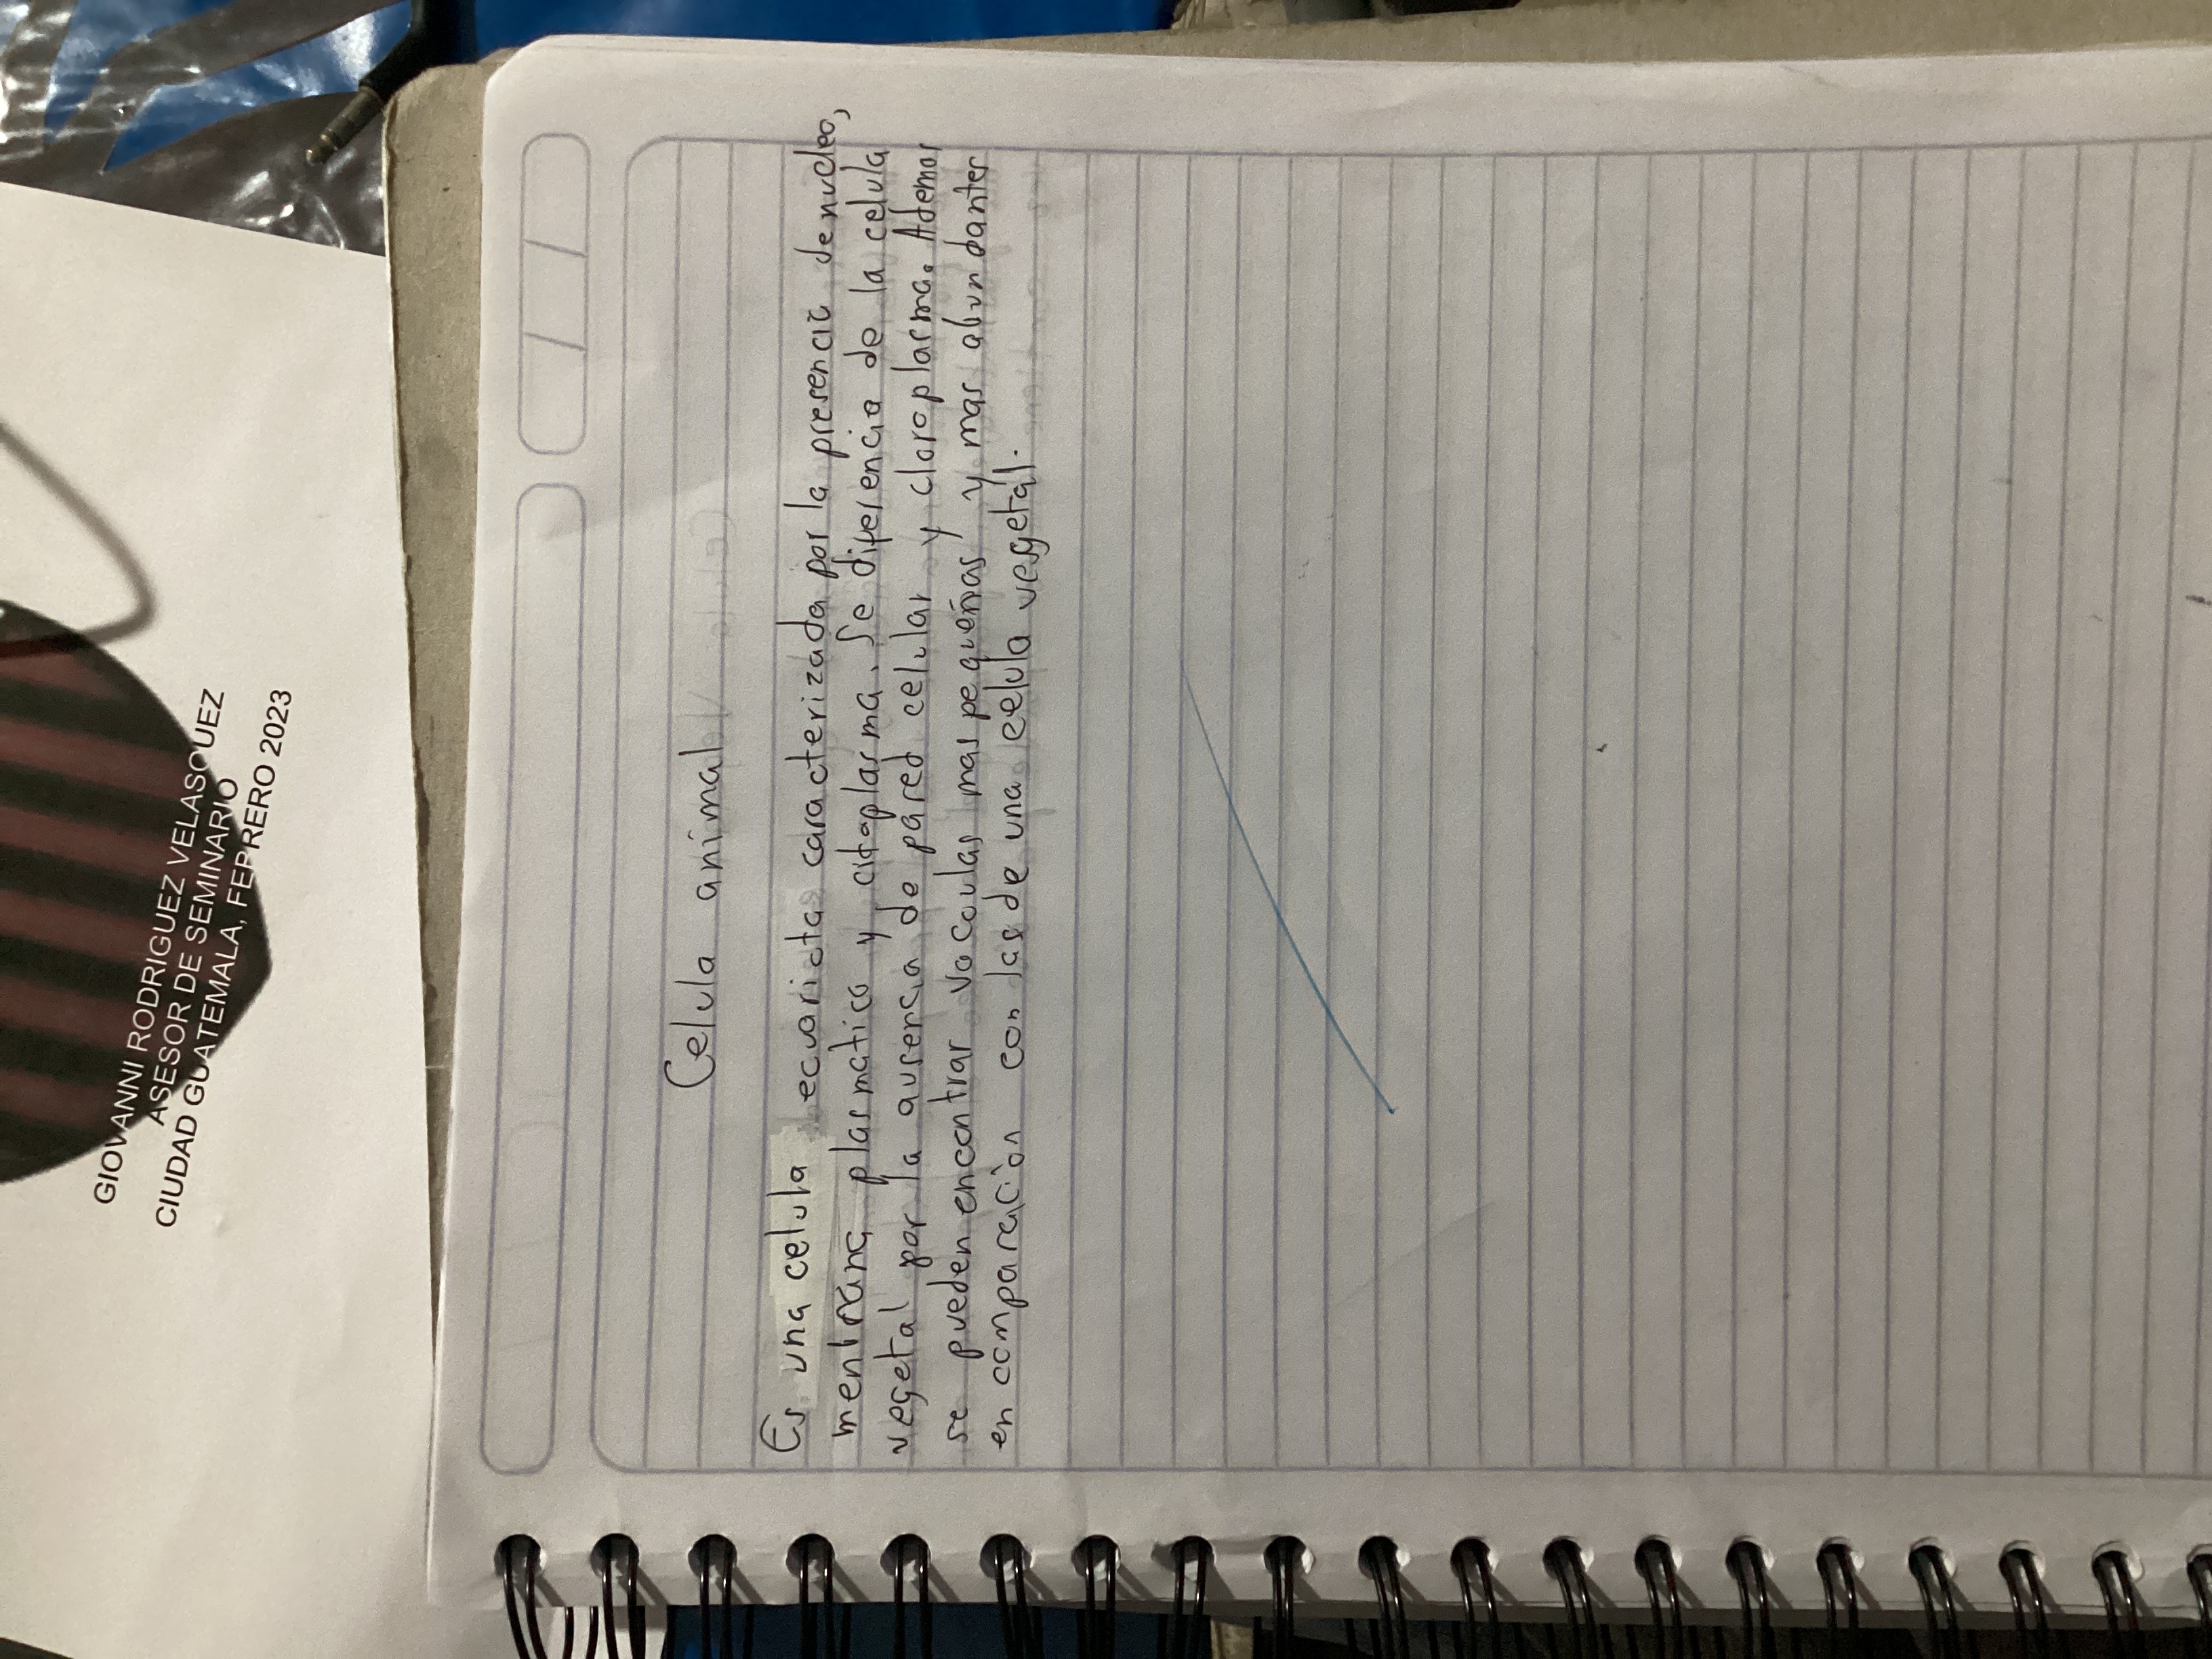 GIOVANNI RODRIGUEZ VELASQUEZ
ASESOR DE SEMINARIO
CIUDAD GUATEMALA, FEBRERO 2023
Celula animal
Es una celula ecuaricta caracterizada por la presencia de nucleo,
membrana plasmatico y citoplasma. Se diferencia de la celula
vegetal por la ausencia de pared celular y cloroplasma. Ademas
se pueden encontrar vacoulas mas pequeñas y mas abundantes
en comparación con las de una celula vegetal.